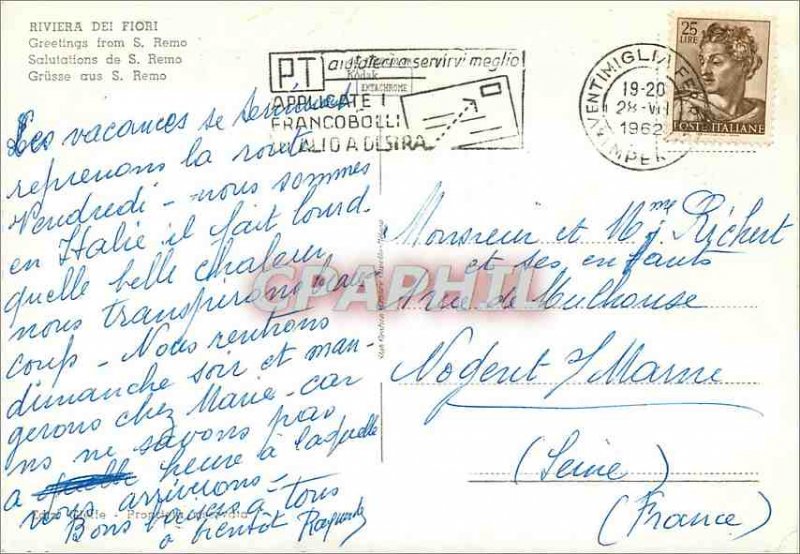 RIVIERA DEI FIORI
Greetings from S. Remo
Salutations de S. Remo
Grüsse aus S. Remo
PT aiutateci a servirvi meglio
Kodak
EKTACHROME
APPLICATE I
FRANCOBOLLI
IN ALTO A DESTRA
VENTIMIGLIA FER
19-20
28-VII
1962
IMPER
25
LIRE
POSTE ITALIANE
Les vacances se terminent
reprenons la route
Vendredi - nous sommes
en Italie il fait lourd.
quelle belle chaleur
nous transpirons beau-
coup - Nous rentrons
dimanche soir et man-
gerons chez Marie - car
ns ne savons pas
a quelle heure à laquelle
nous arrivions -
Bons baisers à tous
à bientôt Raymonde
Monsieur et Mme J. Richert
et ses enfants
rue de Mulhouse
Nogent s/ Marne
(Seine)
(France)
CPAPHIL